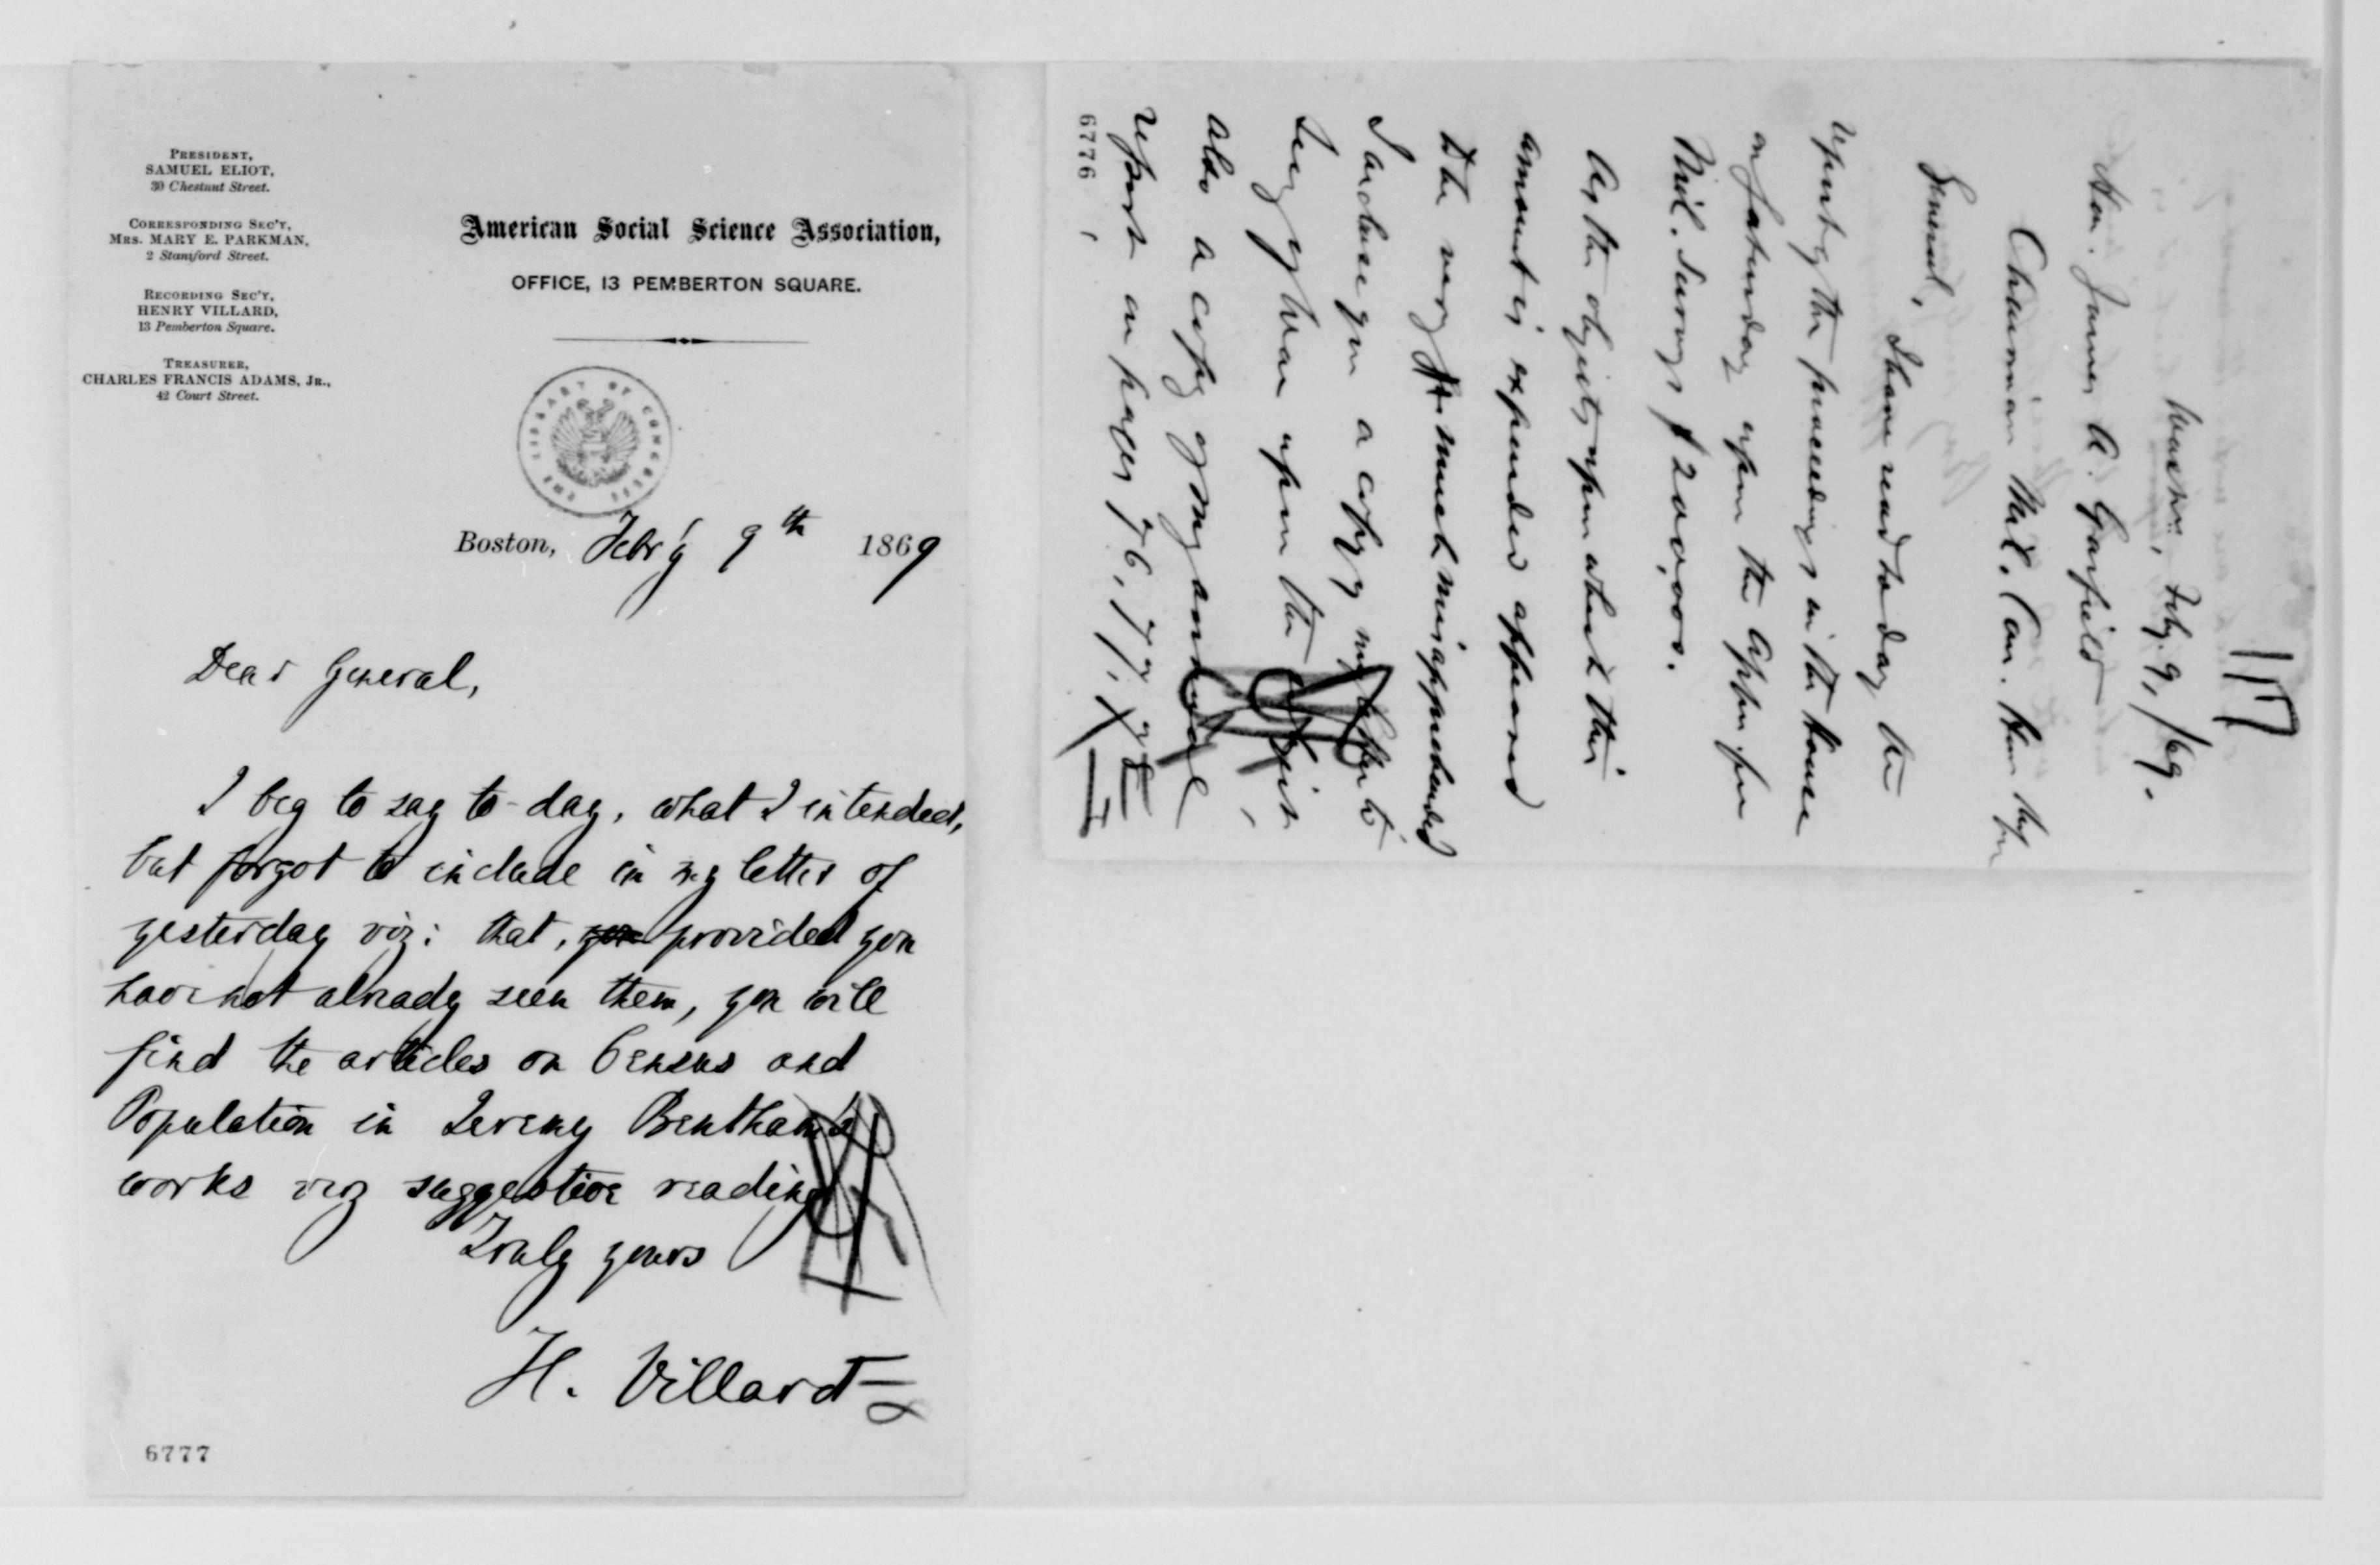 PRESIDENT,
SAMUEL ELIOT,
30 Chestnut Street.
CORRESPONDING SEC'Y,
MRS. MARY E. PARKMAN,
2 Staniford Street.
RECORDING SEC'Y,
HENRY VILLARD,
13 Pemberton Square.
TREASURER,
CHARLES FRANCIS ADAMS, JR.,
42 Court Street.
American Social Science Association,
OFFICE, 13 PEMBERTON SQUARE.
THE LIBRARY OF CONGRESS
Boston, Febr'y 9th 1869
Dear General,
I beg to say to-day, what I intended,
but forgot to include in my letter of
yesterday viz: that, you provided you
have not already seen them, you will
find the articles on Census and
Population in Jeremy Bentham's
works very suggestive reading
Truly yours
H. Villard
6777
Washn, Feby. 9, /69.
Hon. James A. Garfield
Chairman Mil. Com. House
General,
I have read to day the
report of the proceedings in the House
on Saturday upon the appn for
Mil. Surveys $200,000.
As the objects upon which this
amount is expended appeared
to be very much misapprehended
I enclose you a copy of my letter to
Secy of War upon the subject
also a copy of my annual
report on pages 76, 77, 78
6776